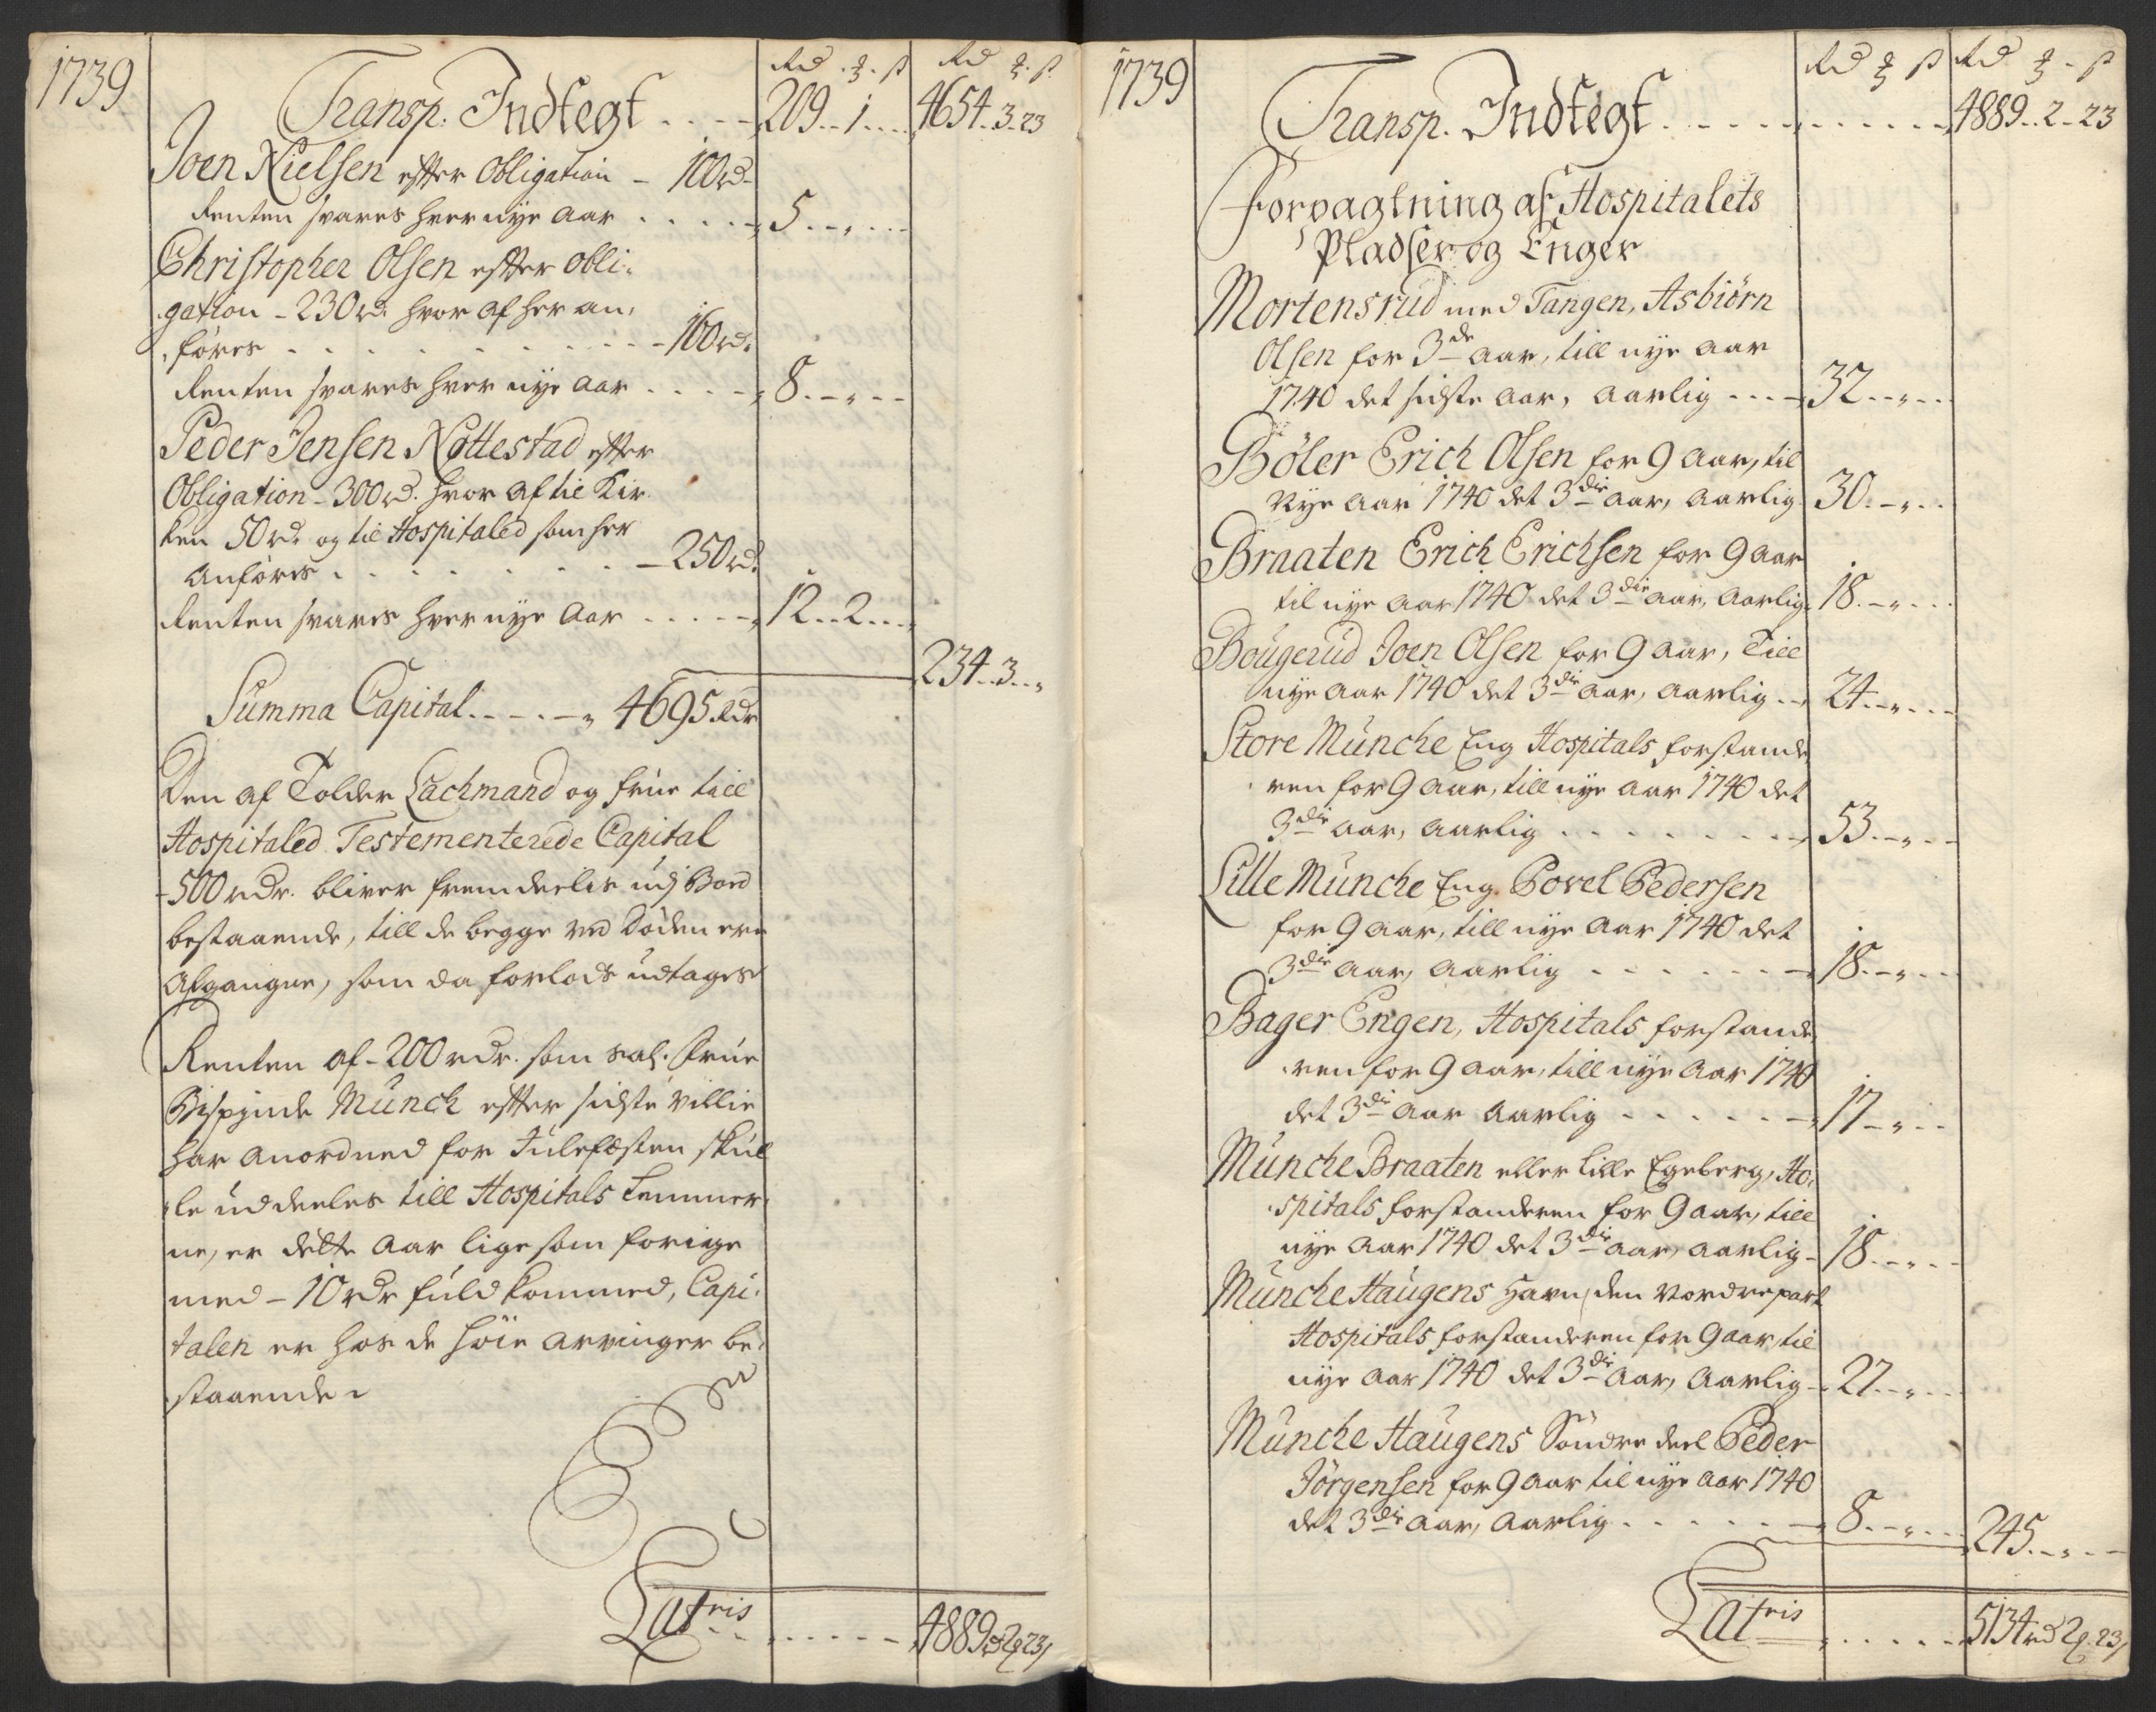 1739
Rd . ƺ . ß Rd ƺ . ß
Transp. Indtegt . . . . 209 . . 1 . . . 4654 . 3 . 23
Joen Nielsen efter Obligation – 100 rd.
Renten svares hver nye Aar . . . . . 5 . . „ . . .
Christopher Olsen efter obli„
gation – 230 rd. hvor af her an„
„føres . . . . . . . . . – 160 rd.
Renten svares hver nye Aar . . . . 8 . – „ – –
Peder Jensen Nøttestad efter
Obligation – 300 rd. hvor af til Kir„
ken 50 rd. og til Hospitaled som her
Anføres . . . . . . . . – 250 rd.
Renten svares hver nye Aar . . . . . 12 . . 2 . . .
234 . . 3 . . „
Summa Capital . . – . – „ 4695 Rdr
Den af Tolder Lachmand og frue till
Hospitaled Testementerede Capital
– 500 rdr. bliver fremdeelis udj Boed
bestaaende, till de begge ved Døden ere
Afgangne, som da forlods udtages
Renten af – 200 rdr. som sal. Frue
Bispinde Munch efter sidste villie
har anordned for Julefæsten skul„
„le uddeeles till Hospitals Lemmer„
ne, er dette Aar lige som forige
med – 10 rdr fuldkommed, Capi„
talen er hos de høie arvinger be„
staaende.
Latris . . . . . . . 4889 rd 2 ƺ 23 ß
1739
Rd ƺ ß Rd ƺ – ß
Transp. Indtegt . . . . . . . . . . . 4889 . . 2 – 23
Forpagtning af Hospitalets
Pladser og Enger
Mortensrud med Tangen, Asbiørn
Olsen for 3de Aar, till nye Aar
1740 det sidste Aar, Aarlig . . . – 32 . . „ . .
Bøler Erich Olsen for 9 Aar, til
Nye Aar 1740 det 3die Aar, Aarlig 30 . – „ . .
Braaten Erich Erichsen for 9 Aar
til nye Aar 1740 det 3die Aar, Aarlig. 18 . – „ . . .
Bougerud Joen Olsen for 9 Aar, Till
nye Aar 1740 det 3die Aar, Aarlig . . 24 . – „ . . .
Store Munche Eng Hospitals forstande„
„ren for 9 Aar, till nye Aar 1740 det
3die Aar, Aarlig . . . . . . . . . 53 . . „ . . .
Lille Munche Eng. Povel Pedersen
for 9 Aar, till nye Aar 1740 det
3die Aar, Aarlig . . . . . . – 18 . – „ . . .
Bager Engen, Hospitals forstande„
„ren for 9 Aar, till nye Aar 1740
det 3die Aar Aarlig . . . . . . – 17 – „ . . .
Munche Braaten eller Lille Egeberg, Ho„
„spitals forstanderen for 9 Aar, till
nye Aar 1740 det 3die Aar, Aarlig – 18 . – „ . .
Munche Haugens Havn, den Nordre part
Hospitals forstanderen for 9 Aar, til
nye Aar 1740 det 3die Aar, Aarlig – 27 . . „ . . .
Munche Haugens Søndre deel Peder
Jørgensen for 9 Aar til nye Aar 1740
det 3die Aar, Aarlig . . . . . . – 8 . . „ . . . 245 . – „ . –
Latris . . . . . . 5134 rd 2 ƺ . 23 ß